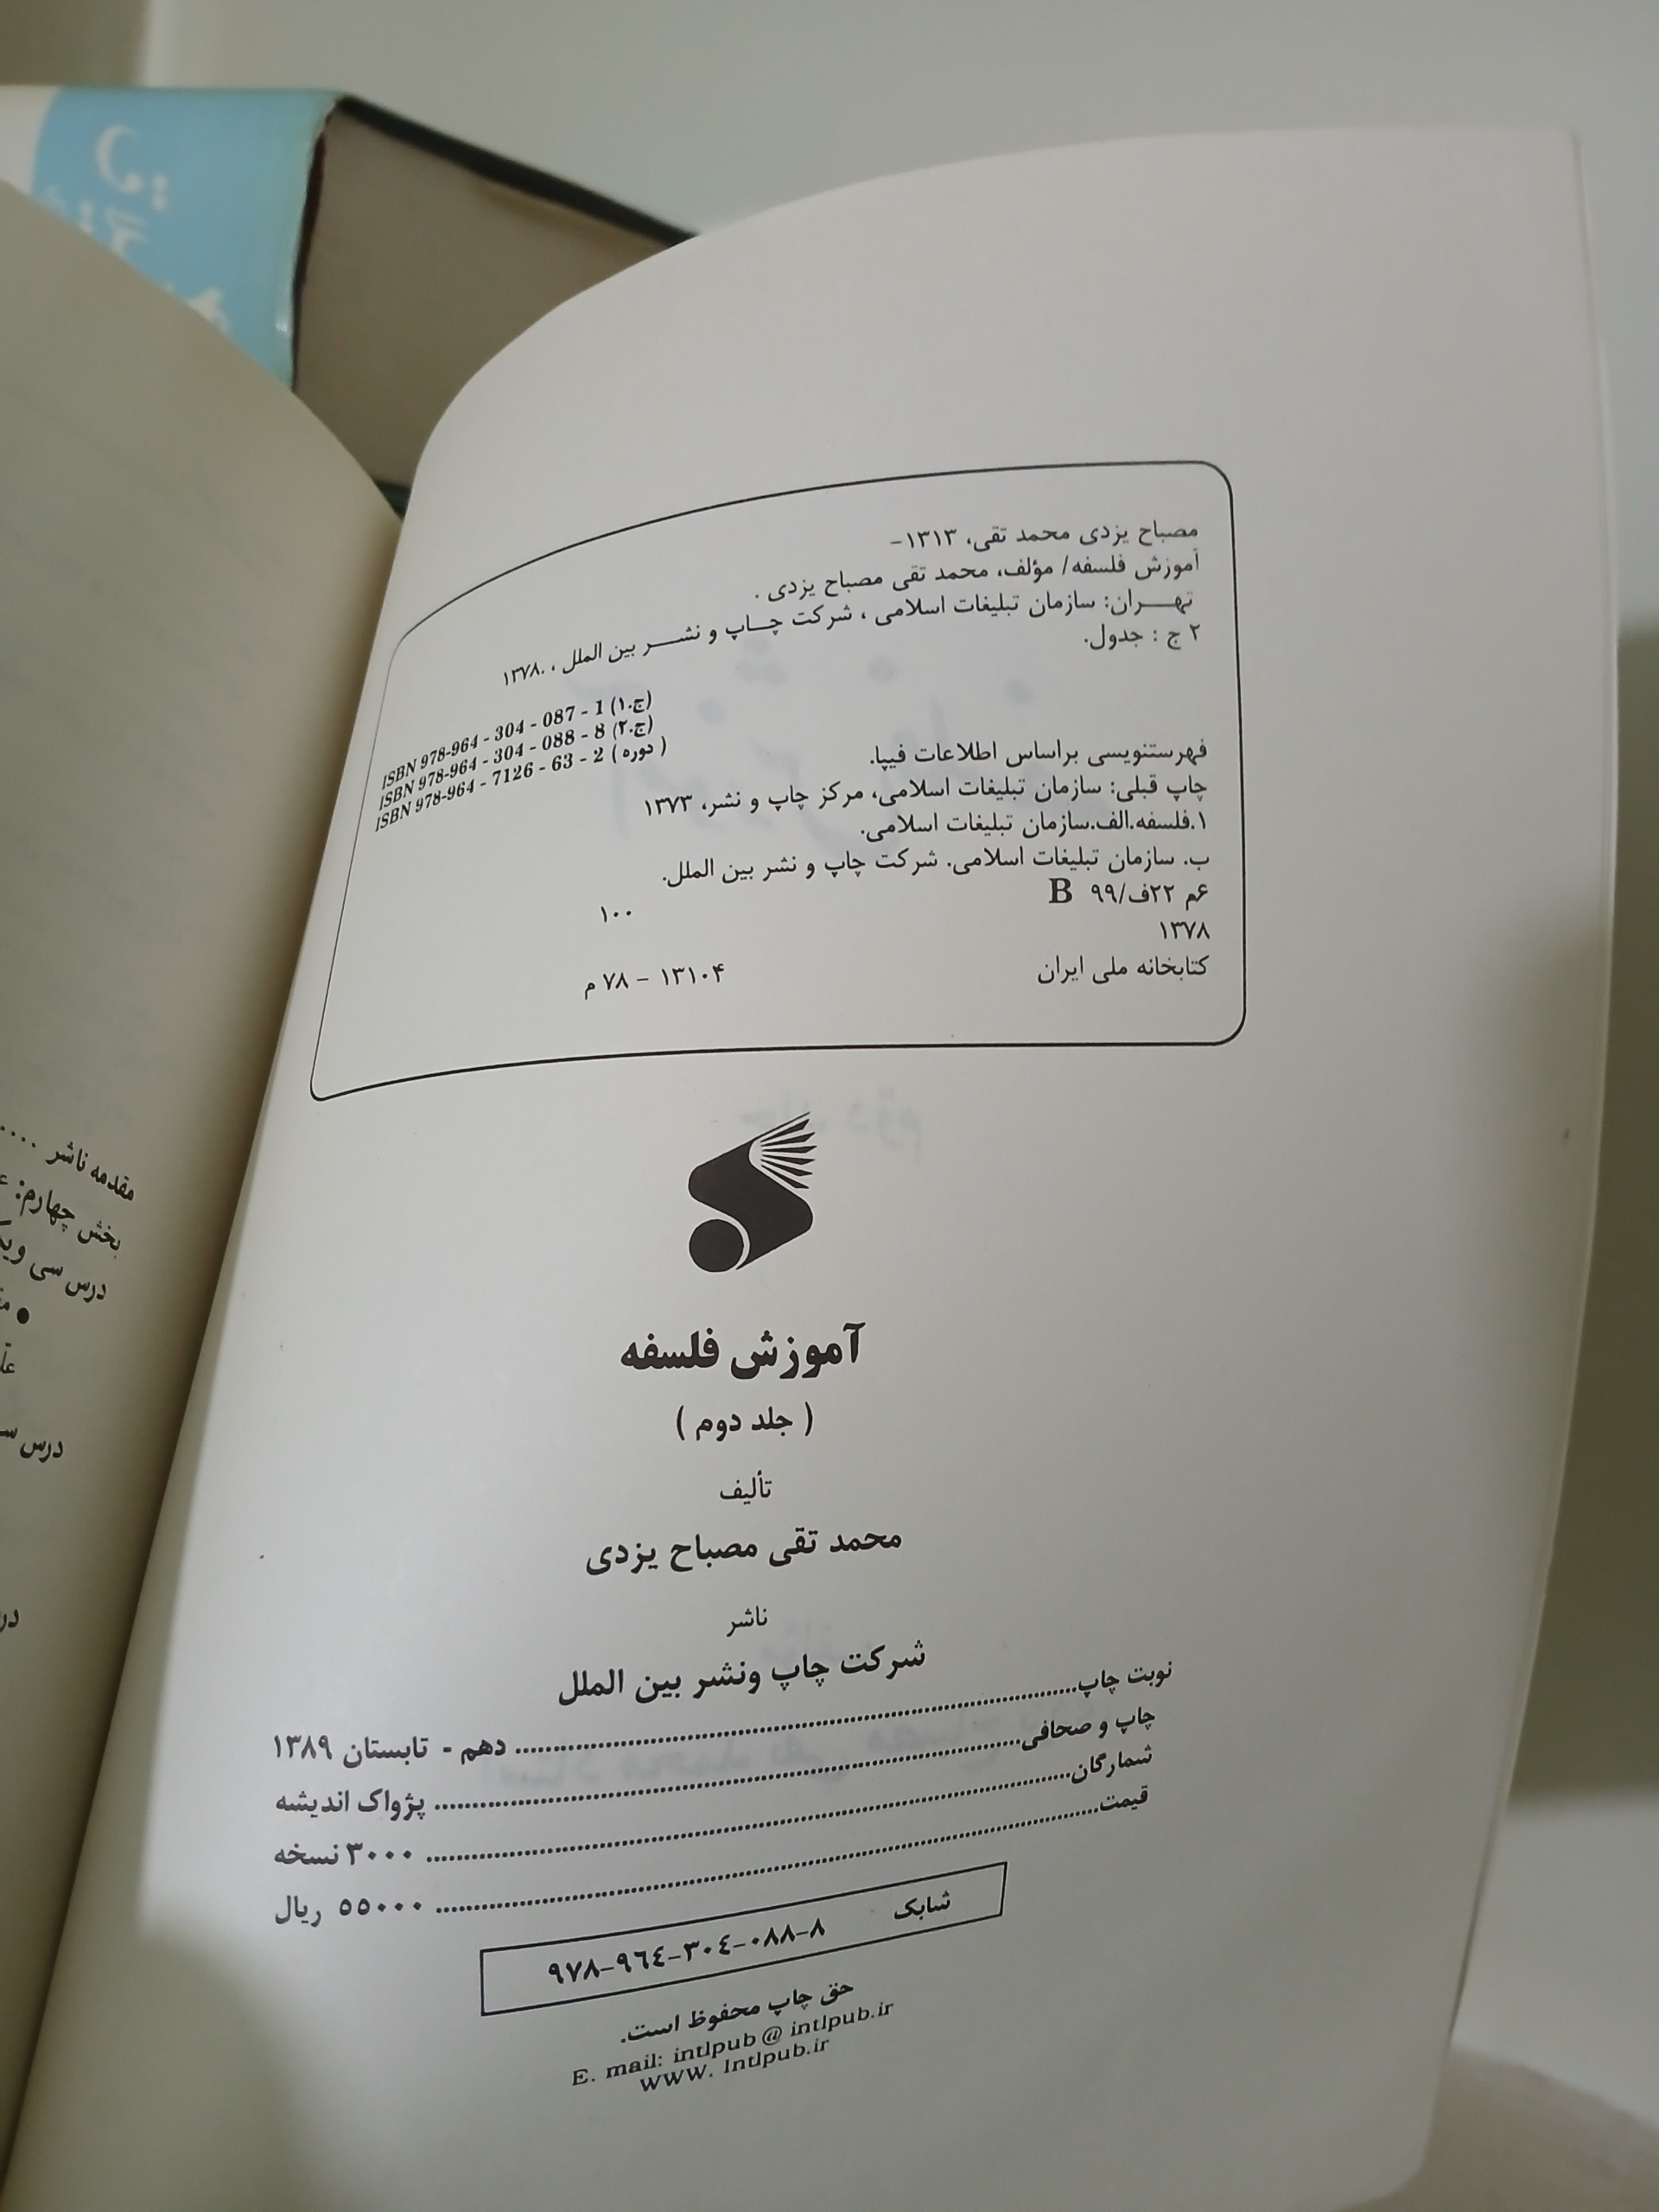 مصباح یزدی محمد تقی، ۱۳۱۳-
آموزش فلسفه/ مؤلف، محمد تقی مصباح یزدی .
تهـــران: سازمان تبلیغات اسلامی ، شرکت چــاپ و نشـــر بین الملل ، ۱۳۷۸.
۲ ج : جدول.
ISBN 978-964 - 304 - 087 - 1 (ج.۱)
ISBN 978-964 - 304 - 088 - 8 (ج.۲)
ISBN 978-964 - 7126 - 63 - 2 ( دوره )
فهرستنویسی براساس اطلاعات فیپا.
چاپ قبلی: سازمان تبلیغات اسلامی، مرکز چاپ و نشر، ۱۳۷۳
۱.فلسفه.الف.سازمان تبلیغات اسلامی.
ب. سازمان تبلیغات اسلامی. شرکت چاپ و نشر بین الملل.
۶م ۲۲ف/۹۹ B ۱۰۰
۱۳۷۸
کتابخانه ملی ایران ۱۳۱۰۴ - ۷۸ م
آموزش فلسفه
( جلد دوم )
تألیف
محمد تقی مصباح یزدی
ناشر
شرکت چاپ ونشر بین الملل
نوبت چاپ.......... دهم - تابستان ۱۳۸۹
چاپ و صحافی.......... پژواک اندیشه
شمارگان.......... ۳۰۰۰ نسخه
قیمت.......... ۵۵۰۰۰ ریال
شابک ۹۷۸-۹٦٤-۳۰٤-۰۸۸-۸
حق چاپ محفوظ است.
E. mail: intlpub @ intlpub.ir
WWW. Intlpub.ir
مقدمه ناشر ....
بخش چهارم:
درس سی ویک
درس